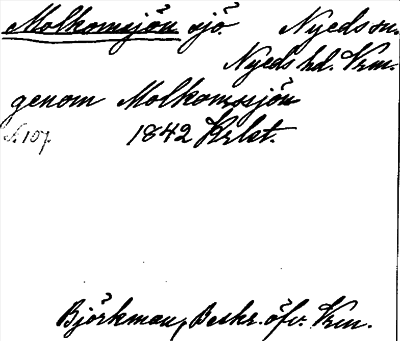 Molkomsjön sjö Nyeds sn.
Nyeds hd. Vrm.
genom Molkomssjön
s. 107. 1842 Krlst.
Björkman, Beskr. öfv. Vrm.